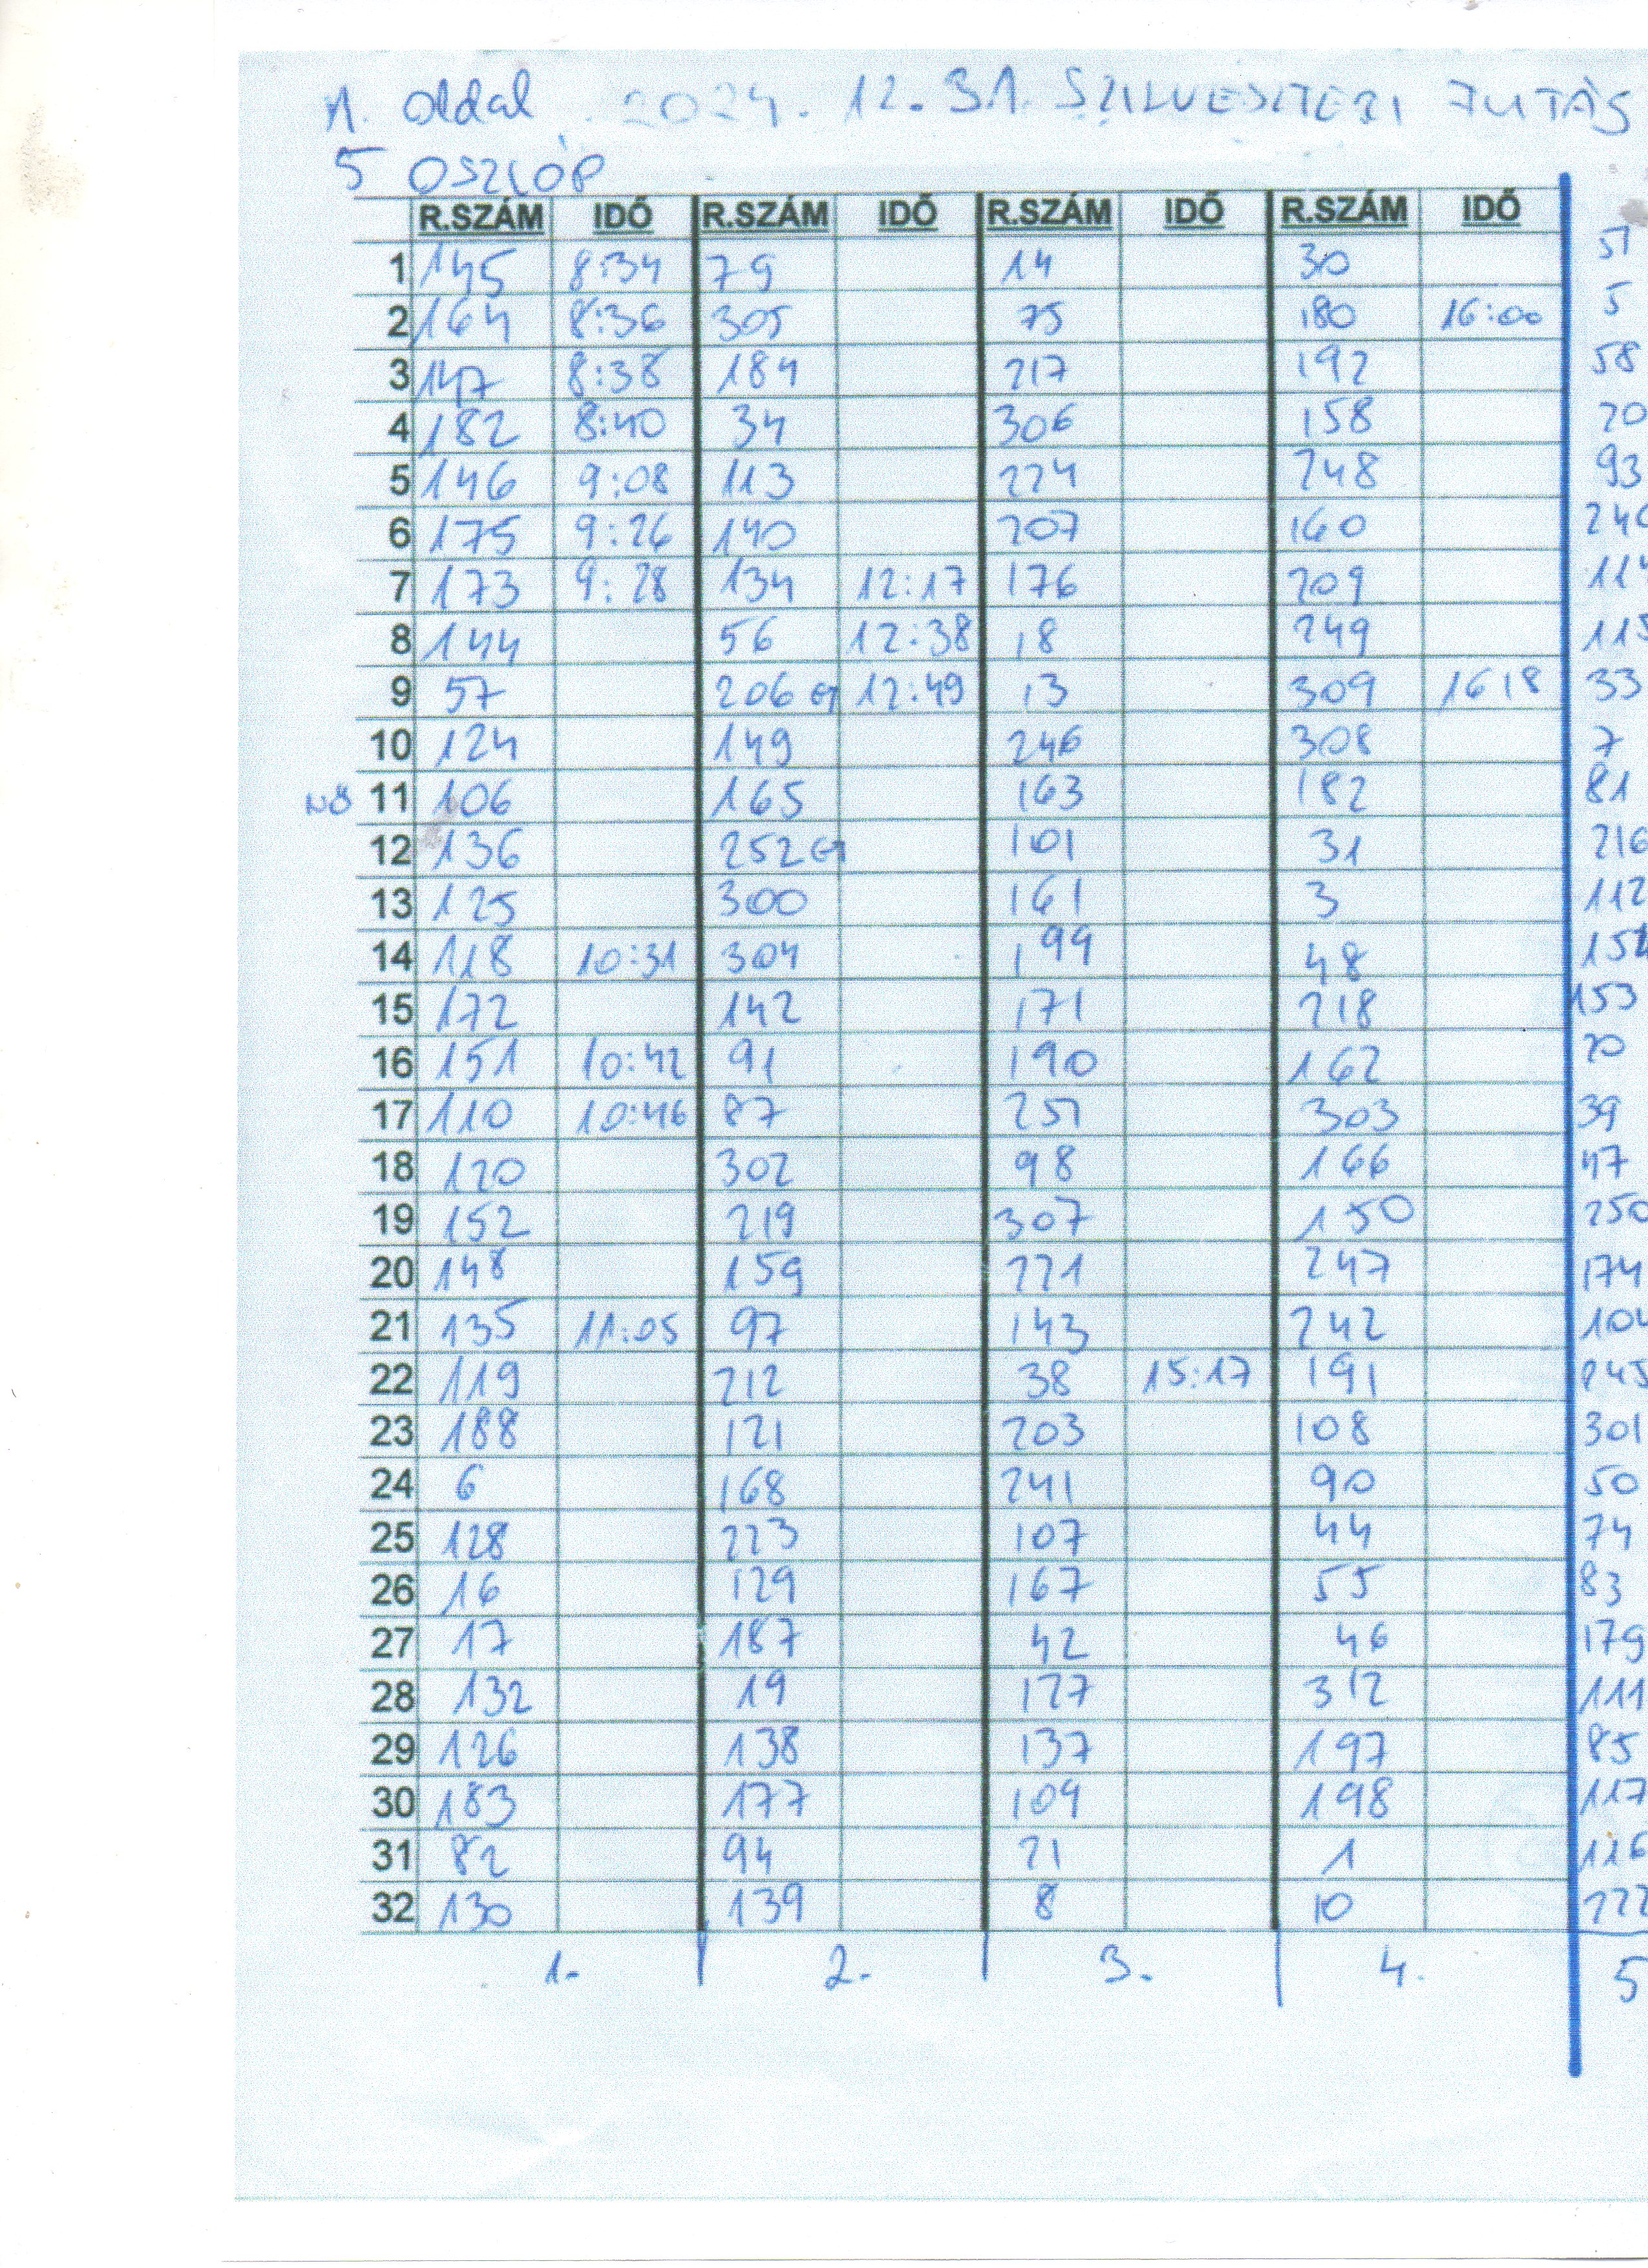 1. oldal 2024. 12. 31. SZILVESZTERI FUTÁS
5 OSZLOP
R.SZÁM IDŐ R.SZÁM IDŐ R.SZÁM IDŐ R.SZÁM IDŐ
1 145 8:34 79 14 30 51
2 164 8:36 305 75 180 16:00 5
3 147 8:38 184 217 192 58
4 182 8:40 34 306 158 20
5 146 9:08 113 224 248 93
6 175 9:26 140 207 160 240
7 173 9:28 134 12:17 176 209 114
8 144 56 12:38 18 249 115
9 57 206 12:49 13 309 16 18 33
10 124 149 246 308 7
NŐ 11 106 165 163 182 81
12 136 252 101 31 216
13 125 300 161 3 112
14 118 10:31 304 199 48
15 172 142 171 218 153
16 151 10:42 91 190 162 20
17 110 10:46 87 251 303 39
18 120 302 98 166 47
19 152 219 307 150 250
20 148 159 221 247 174
21 135 11:05 97 143 242 104
22 119 212 38 15:17 191
23 188 121 203 108 301
24 6 168 241 90 50
25 128 223 107 44 74
26 16 129 167 55 83
27 17 187 42 46 179
28 132 19 127 312 111
29 126 138 137 197 85
30 183 177 109 198 117
31 82 94 21 1 116
32 130 139 8 10 222
1. 2. 3. 4. 5